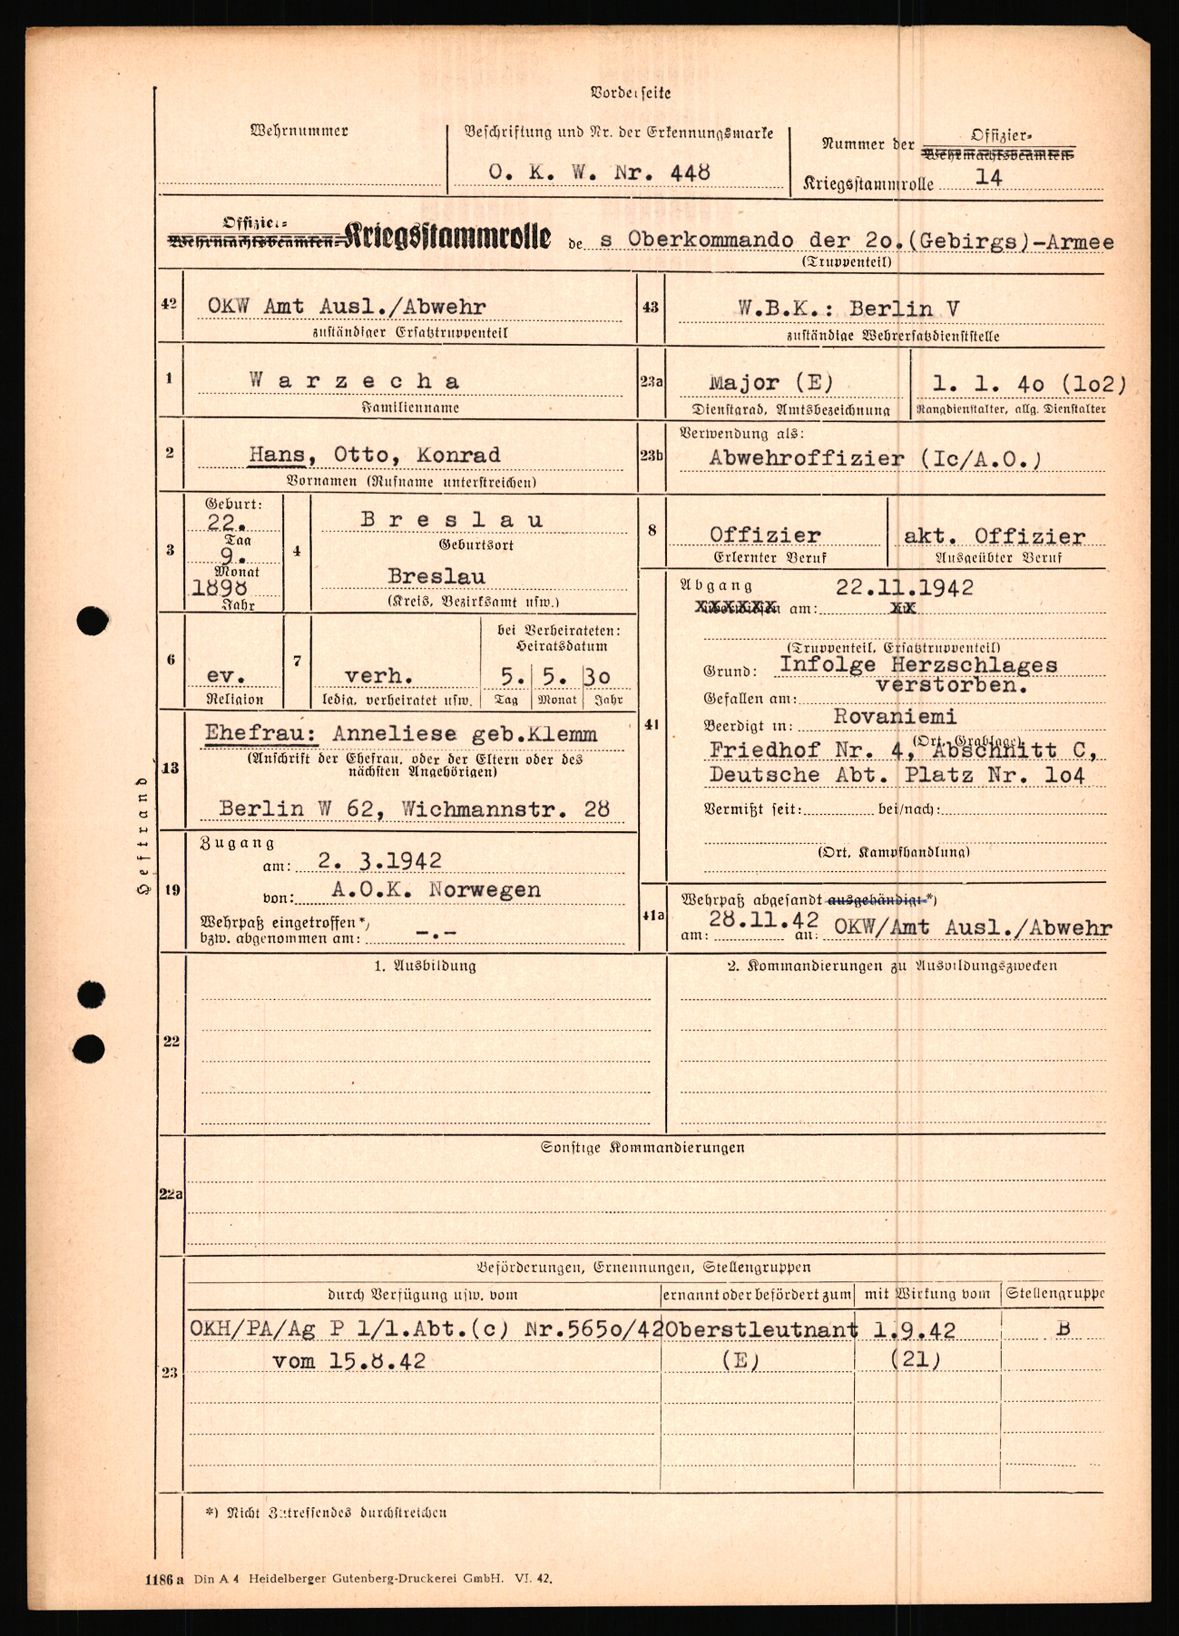 Vorderseite
Wehrnummer
Beschriftung und Nr. der Erkennungsmarke
O. K. W. Nr. 448
Nummer der Offizier-
Wehrmachtsbeamten-
Kriegsstammrolle 14
Offizier-
Wehrmachtsbeamten-Kriegsstammrolle de s Oberkommando der 2o.(Gebirgs)-Armee
(Truppenteil)
42 OKW Amt Ausl./Abwehr
zuständiger Ersatztruppenteil
43 W.B.K.: Berlin V
zuständige Wehrersatzdienststelle
1 W a r z e c h a
Familienname
23a Major (E) 1. 1. 4o (1o2)
Dienstgrad, Amtsbezeichnung Rangdienstalter, allg. Dienstalter
2 Hans, Otto, Konrad
Vornamen (Rufname unterstreichen)
23b Verwendung als:
Abwehroffizier (Ic/A.O.)
3 Geburt:
22.
Tag
9.
Monat
1898
Jahr
4 B r e s l a u
Geburtsort
Breslau
(Kreis, Bezirksamt usw.)
8 Offizier akt. Offizier
Erlernter Beruf Ausgeübter Beruf
6 ev.
Religion
7 verh.
ledig, verheiratet usw.
bei Verheirateten:
Heiratsdatum
5. 5. 3o
Tag Monat Jahr
41 Abgang 22.11.1942
am:
(Truppenteil, Ersatztruppenteil)
Grund: Infolge Herzschlages
verstorben.
Gefallen am:
Beerdigt in: Rovaniemi
(Ort, Grablage)
Friedhof Nr. 4, Abschnitt C,
Deutsche Abt. Platz Nr. 1o4
Vermißt seit: bei/nach:
(Ort, Kampfhandlung)
13 Ehefrau: Anneliese geb.Klemm
(Anschrift der Ehefrau, oder der Eltern oder des
nächsten Angehörigen)
Berlin W 62, Wichmannstr. 28
19 Zugang
am: 2. 3.1942
von: A.O.K. Norwegen
Wehrpaß eingetroffen*)
bzw. abgenommen am: -.-
41a Wehrpaß abgesandt ausgehändigt *)
am: 28.11.42 an: OKW/Amt Ausl./Abwehr
Heftrand
22 1. Ausbildung
2. Kommandierungen zu Ausbildungszwecken
22a Sonstige Kommandierungen
23 Beförderungen, Ernennungen, Stellengruppen
durch Verfügung usw. vom ernannt oder befördert zum mit Wirkung vom Stellengruppe
OKH/PA/Ag P 1/1.Abt.(c) Nr.565o/42 Oberstleutnant 1.9.42 B
vom 15.8.42 (E) (21)
*) Nicht Zutreffendes durchstreichen
1186 a Din A 4 Heidelberger Gutenberg-Druckerei GmbH. VI. 42.